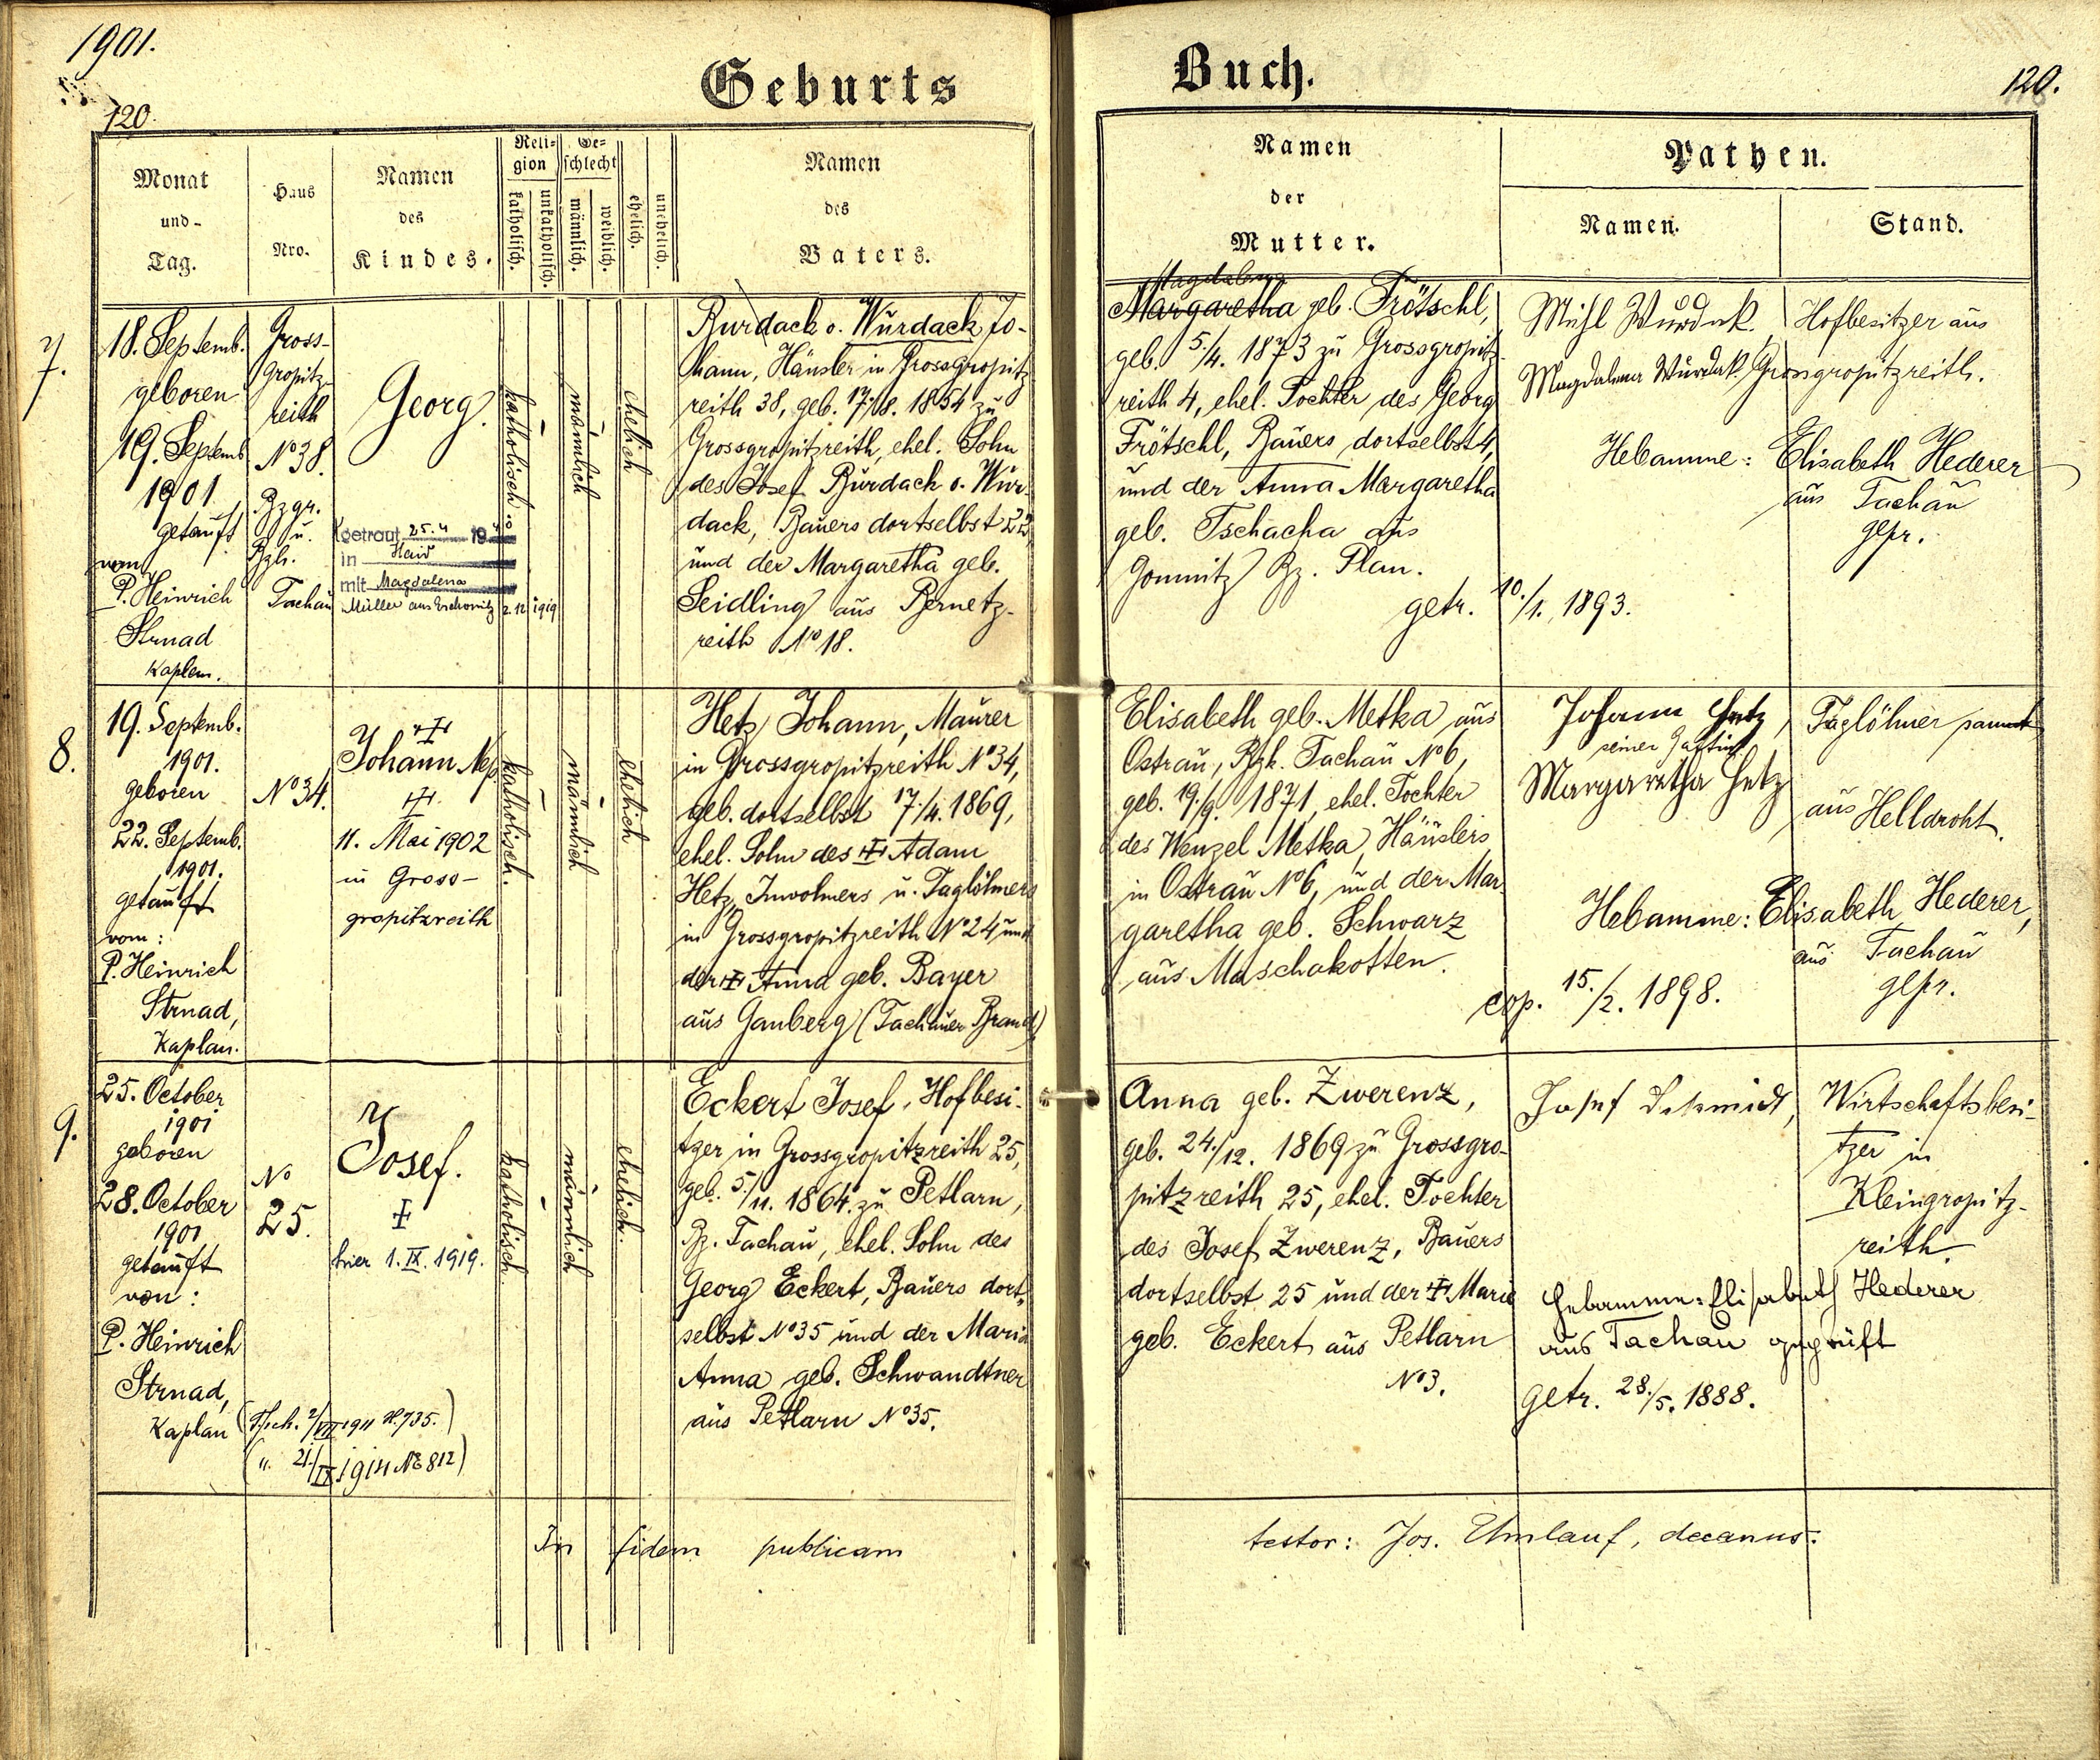 1901.
120.
Geburts
Buch.
120.
Monat
und
Tag.
Haus
Nro.
Namen
des
Kindes.
Religion
katholisch.
unkatholisch.
Geschlecht
männlich.
weiblich.
ehelich.
unehelich.
Namen
des
Vaters.
Namen
der
Mutter.
Pathen.
Namen.
Stand.
7.
18. Septemb.
geboren
19. Septemb
1901
getauft
vom
P. Heinrich
Strnad
Kaplan.
Gross-
Gropitz-
reith
No 38.
Bzgr.
u.
Bzh.
Tachau
Georg.
getraut 25.4 19
in Haid
mit Magdalena
Müller aus
2.12 1919
katholisch
-
männlich
-
ehelich
Burdach o. Wurdack Jo-
hann, Häusler in Grossgropitz
reith 38, geb. 17./8. 1854 zu
Grossgropitzreith, ehel. Sohn
des Josef Burdach o. Wur-
dack, Bauers dortselbst 22
und der Margaretha geb.
Seidling aus Pernetz-
reith No 18.
Magdalena
Margaretha geb. Frötschl,
geb. 5./4. 1873 zu Grossgropitz-
reith 4, ehel. Tochter des Georg
Frötschl, Bauers dortselbst 4,
und der Anna Margaretha
geb. Tschacha aus
Bz. Plan.
getr. 10./1. 1893.
Wurdak.
Magdalena Wurdak.
Hofbesitzer aus
Grossgropitzreith.
Hebamme: Elisabeth Hederer
aus Tachau
gepr.
8.
19. Septemb.
1901.
geboren
22. Septemb.
1901.
getauft
vom:
P. Heinrich
Strnad,
Kaplan.
No 34.
Johann Nep.
11. Mai 1902
in Gross-
gropitzreith
katholisch.
-
männlich
-
ehelich
Hetz Johann, Maurer
in Grossgropitzreith No 34,
geb. dortselbst 17./4. 1869,
ehel. Sohn des Adam
Hetz, Inwohners u. Taglöhners
in Grossgropitzreith No 24 und
der Anna geb. Bayer
aus Ganberg (Tachauer Brand)
Elisabeth geb. Metka aus
Ostrau, Bzk. Tachau No 6,
geb. 19./9. 1871, ehel. Tochter
des Wenzel Metka, Häuslers
in Ostrau No 6, und der Mar
garetha geb. Schwarz
aus Maschakotten.
cop. 15./2. 1898.
Johann Hetz,
seiner Gattin
Margaretha Hetz
Taglöhner sammt
aus Helldroht.
Hebamme: Elisabeth Hederer,
aus Tachau
gepr.
9.
25. October
1901
geboren
28. October
1901
getauft
von:
P. Heinrich
Strnad,
Kaplan
No
25.
Josef.
hier 1. IX. 1919.
katholisch.
-
männlich
-
ehelich.
Eckert Josef, Hofbesi-
tzer in Grossgropitzreith 25,
geb. 5./11. 1864 zu Petlarn,
Bz. Tachau, ehel. Sohn des
Georg Eckert, Bauers dort-
selbst No 35 und der Maria
Anna geb. Schwandtner
aus Petlarn No 35.
Anna geb. Zwerenz,
geb. 24./12. 1869 zu Grossgro-
pitzreith 25, ehel. Tochter
des Josef Zwerenz, Bauers
dortselbst 25 und der Marie
geb. Eckert aus Petlarn
No 3.
Josef Schmidt,
Wirtschaftsbesi-
tzer in
Kleingropitz-
reith
Hebamme: Elisabeth Hederer
aus Tachau geprüft
Getr. 28./5. 1888.
(Tsch. 2/VII 1911 N. 735.)
(" 21./IX 1914 No 812)
In fidem publicam
testor: Jos. Umlauf, decanus.